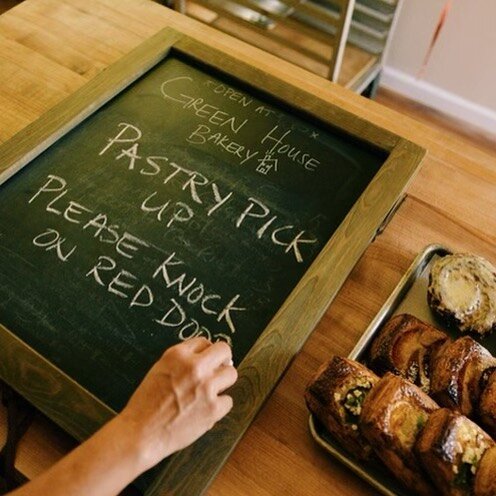 OPEN AT
GREEN HOUSE
BAKERY
PASTRY PICK
UP
PLEASE KNOCK
ON RED DOOR